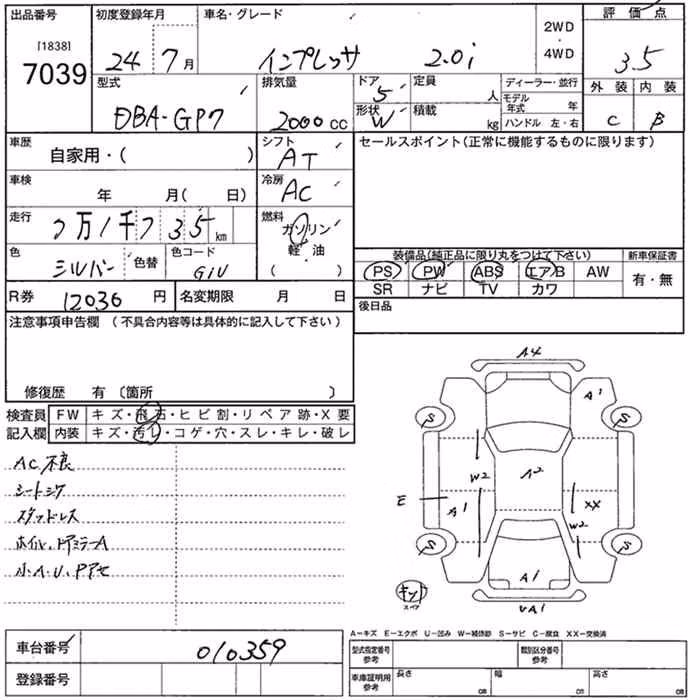 出品番号
[1838]
7039
初度登録年月
24 年 7 月
車名・グレード
インプレッサ 2.0i
2WD
・
4WD
評価点
3.5
型式
DBA-GP7
排気量
2000 cc
ドア
5
形状
W
定員
人
積載
kg
ディーラー・並行
モデル年式 年
ハンドル 左・右
外装 内装
C B
車歴
自家用・( )
シフト
AT
セールスポイント(正常に機能するものに限ります)
車検
年 月( 日)
冷房
AC
走行
7万1千735 km
燃料
ガソリン
軽・油
( )
色
シルバー
色替
色コード
G1U
装備品(純正品に限り丸をつけて下さい)
新車保証書
PS PW ABS エアB AW
SR ナビ TV カワ
有・無
R券 12030 円
名変期限 月 日
後日品
注意事項申告欄 (不具合内容等は具体的に記入して下さい)
修復歴 有 〔箇所 〕
検査員
記入欄
FW キズ・飛石・ヒビ割・リペア跡・X要
内装 キズ・汚レ・コゲ・穴・スレ・キレ・破レ
AC不良
シートシワ
スタッドレス
ホイル、ドアミラーA
小A.U、
A4
A1
S
S
W2
A2
E
A1
XX
W2
S
S
A1
キット
スペア
UA1
A−キズ E−エクボ U−凹み W−補修跡 S−サビ C−腐食 XX−交換済
車台番号 010359
登録番号
型式指定番号
参考
類別区分番号
参考
車庫証明用
参考
長さ cm
幅 cm
高さ cm